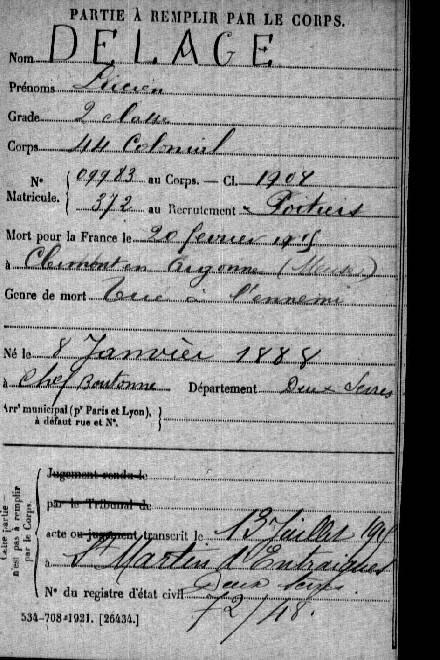 PARTIE À REMPLIR PAR LE CORPS.
Nom DELAGE
Prénoms Lucien
Grade 2 classe
Corps 44 Colonial
N° Matricule. 09983 au Corps. — Cl. 1908
372 au Recrutement Poitiers
Mort pour la France le 20 février 1915
à Clermont en Argonne (Meuse)
Genre de mort Tué à l'ennemi
Né le 8 Janvier 1888
à Chef Boutonne Département Deux Sèvres
Arr' municipal (p' Paris et Lyon),
à défaut rue et N°.
Jugement rendu le
par le Tribunal de
acte ou jugement transcrit le 13 Juillet 191
à St Martin d'Entraigues
Deux Sèvres
N° du registre d'état civil 72/48.
534-708-1921. [26434.]
Cette partie
n'est pas à remplir
par le Corps.